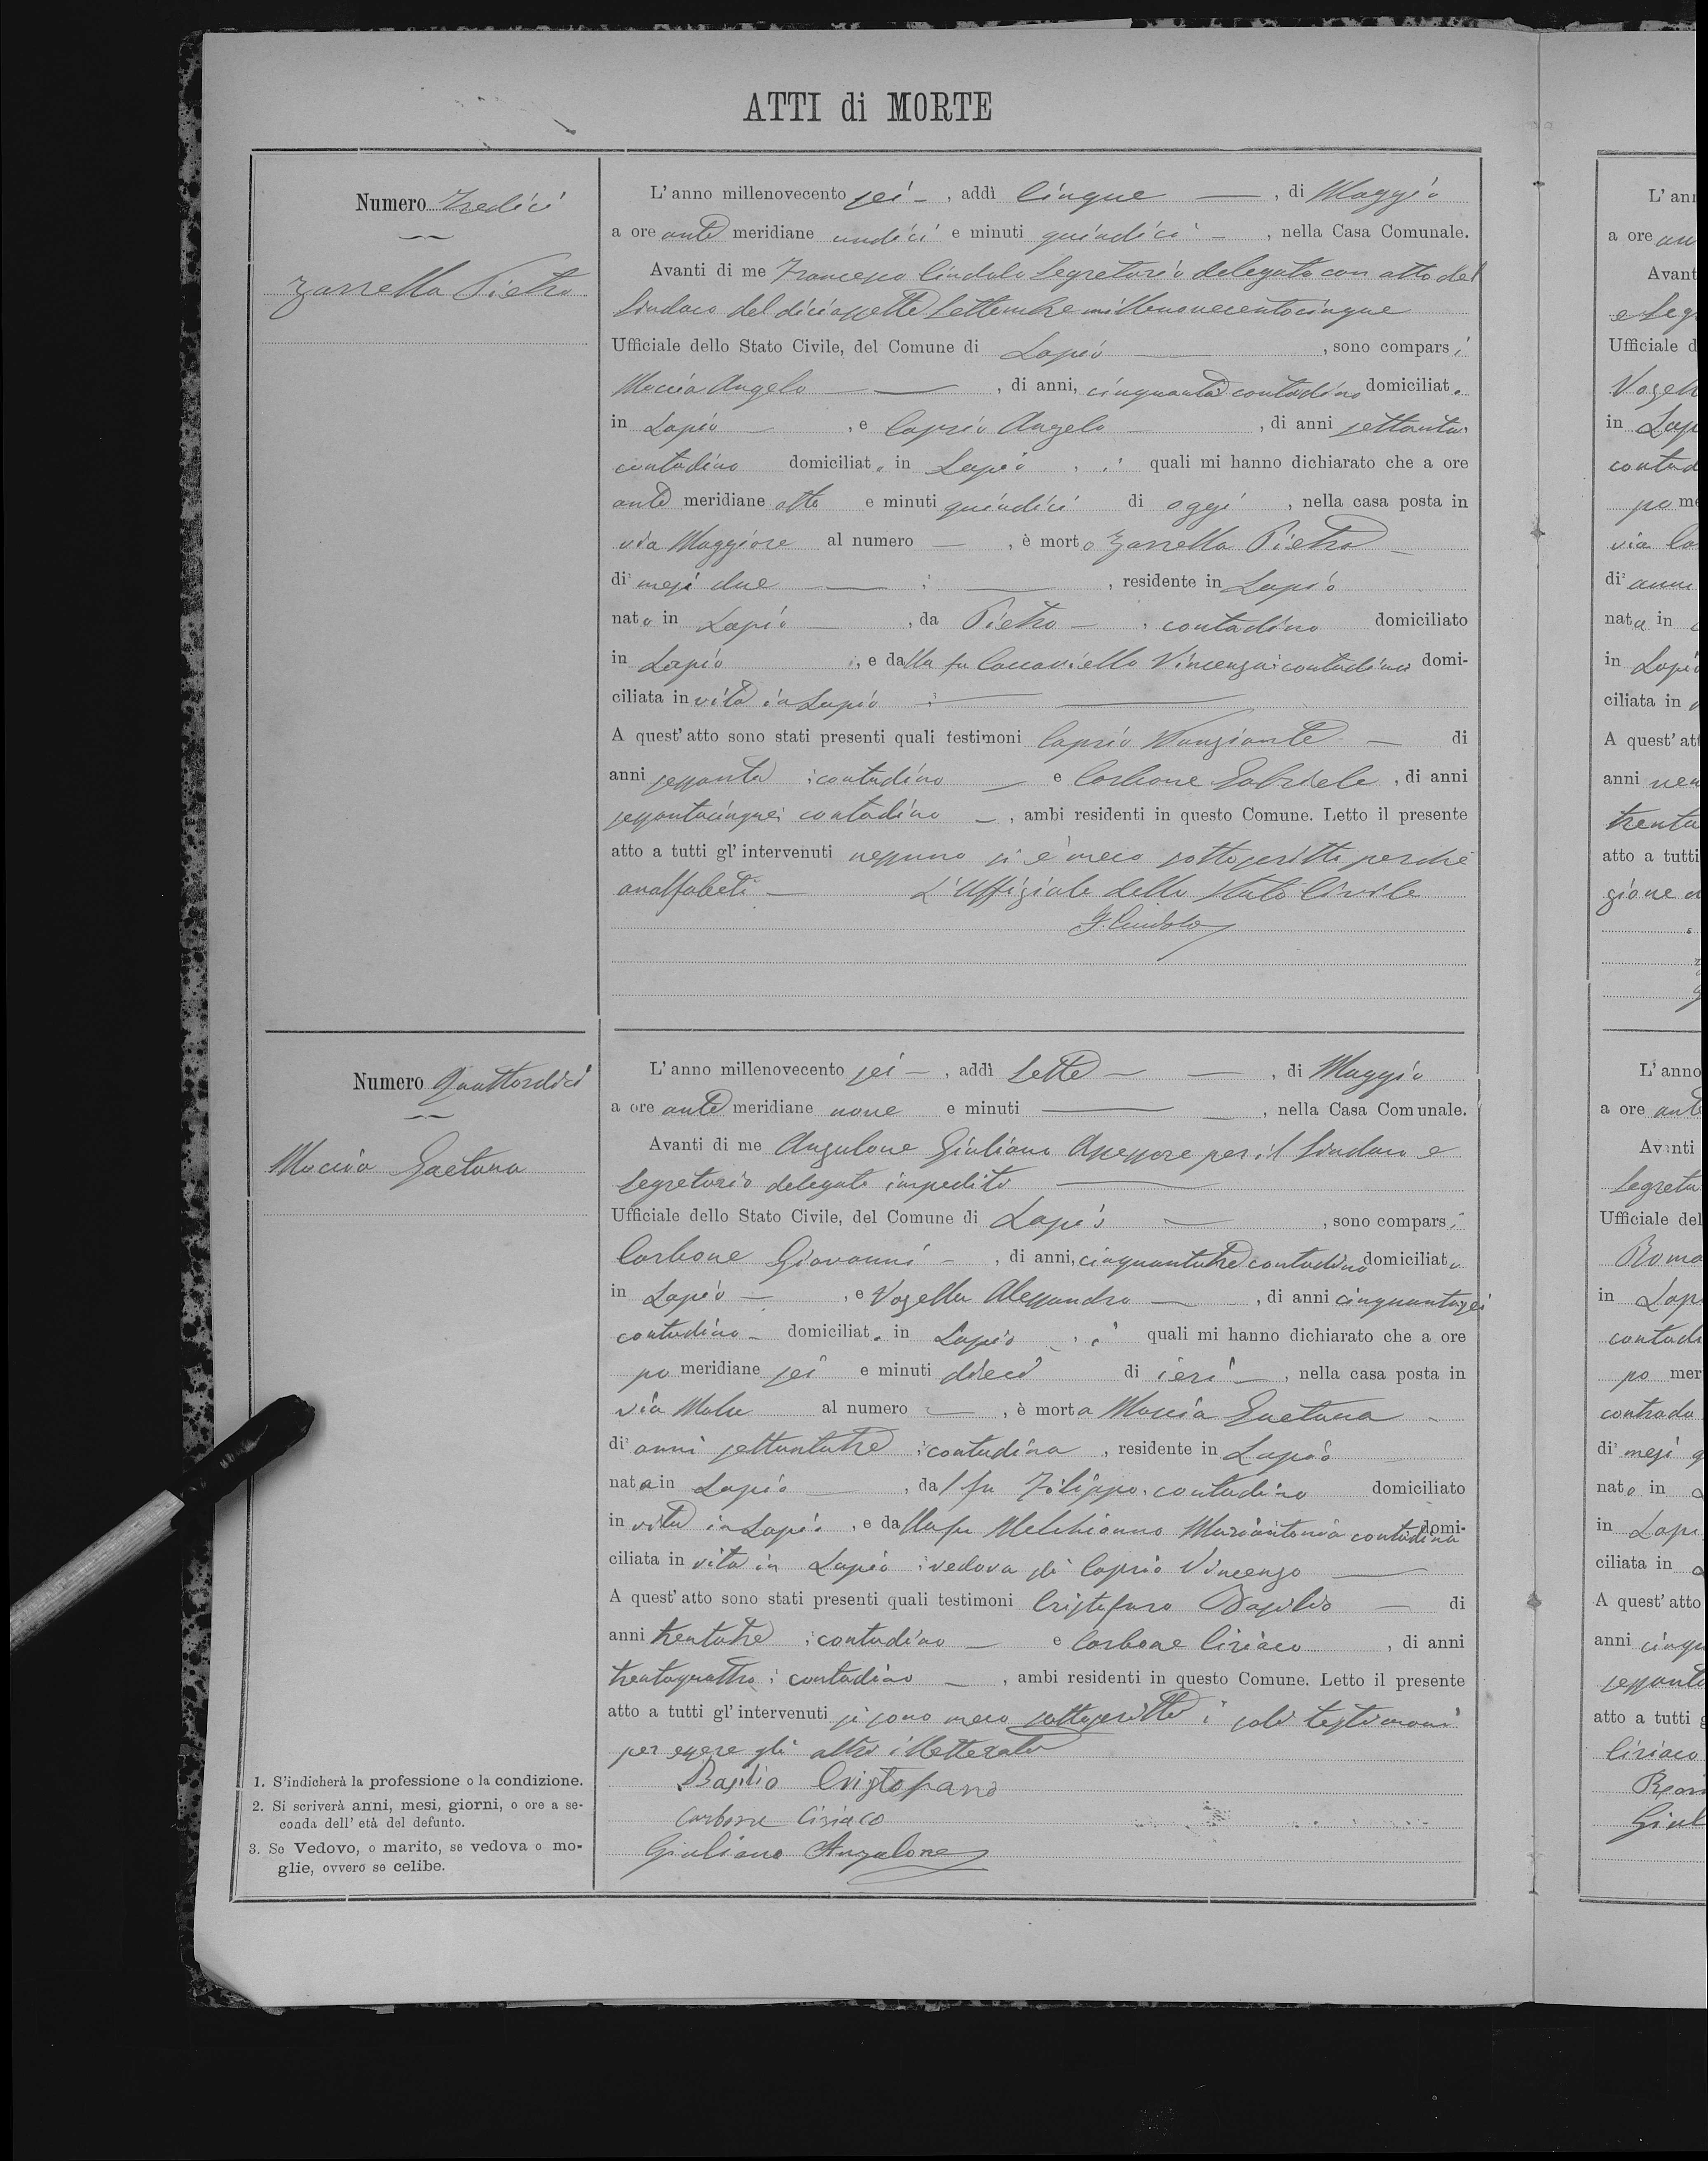 ATTI di MORTE
Numero Tredici
Zarrella Pietro
L'anno millenovecento sei, addì Cinque, di Maggio
a ore ante meridiane undici e minuti quindici, nella Casa Comunale.
Avanti di me Francesco Cindolo Segretario delegato con atto del
Sindaco del diciassette Settembre millenovecentocinque
Ufficiale dello Stato Civile, del Comune di Lapio, sono comparsi
Moccia Angelo, di anni, cinquanta contadino domiciliato
in Lapio, e Caprio Angelo, di anni settanta
contadino domiciliato in Lapio, i quali mi hanno dichiarato che a ore
ante meridiane otto e minuti quindici di oggi, nella casa posta in
via Maggiore al numero —, è morto Zarrella Pietro
di mesi due, residente in Lapio
nato in Lapio, da Pietro, contadino domiciliato
in Lapio, e dalla fu Coccoviello Vincenza contadina domi-
ciliata in vita in Lapio
A quest'atto sono stati presenti quali testimoni Caprio Nunziante di
anni sessanta, contadino e Carbone Gabriele, di anni
sessantacinque, contadino, ambi residenti in questo Comune. Letto il presente
atto a tutti gl'intervenuti nessuno si è meco sottoscritto perché
analfabeti — L'Uffiziale dello Stato Civile
F. Cindolo
Numero Quattordici
Moccia Gaetana
L'anno millenovecento sei, addì Sette, di Maggio
a ore ante meridiane nove e minuti —, nella Casa Comunale.
Avanti di me Anzalone Giuliano Assessore per il Sindaco e
Segretario delegato impediti
Ufficiale dello Stato Civile, del Comune di Lapio, sono comparsi
Carbone Giovanni, di anni, cinquantatre contadino domiciliato
in Lapio, e Vozella Alessandro, di anni cinquantasei
contadino domiciliato in Lapio, i quali mi hanno dichiarato che a ore
po meridiane sei e minuti dieci di ieri, nella casa posta in
via Molse al numero —, è morta Moccia Gaetana
di anni settantatre, contadina, residente in Lapio
nata in Lapio, dal fu Filippo, contadino domiciliato
in vita in Lapio, e dalla fu Melchionno Mariantonia contadina domi-
ciliata in vita in Lapio, vedova di Caprio Vincenzo
A quest'atto sono stati presenti quali testimoni Cristofaro Basilio di
anni trentatre, contadino e Carbone Ciriaco, di anni
trentaquattro, contadino, ambi residenti in questo Comune. Letto il presente
atto a tutti gl'intervenuti si sono meco sottoscritti i soli testimoni
per essere gli altri illetterati
Basilio Cristofaro
Carbone Ciriaco
Giuliano Anzalone
1. S'indicherà la professione o la condizione.
2. Si scriverà anni, mesi, giorni, o ore a se-
conda dell'età del defunto.
3. Se Vedovo, o marito, se vedova o mo-
glie, ovvero se celibe.